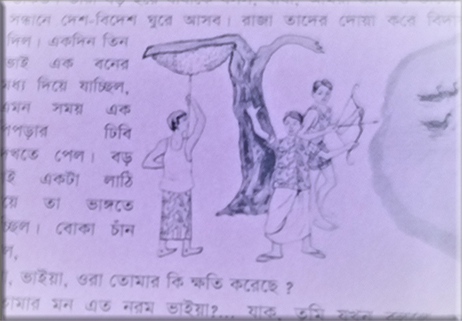 সন্ধানে দেশ-বিদেশ ঘুরে আসব। রাজা তাদের দোয়া করে বিদায়
দিল। একদিন তিন
ভাই এক বনের
মধ্য দিয়ে যাচ্ছিল,
এমন সময় এক
পিঁপড়ার ঢিবি
দেখতে পেল। বড়
ভাই একটা লাঠি
দিয়ে তা ভাঙ্গতে
বোকা চাঁন
ভাইয়া, ওরা তোমার কি ক্ষতি করেছে ?
তোমার মন এত নরম ভাইয়া?... যাক, তুমি যখন